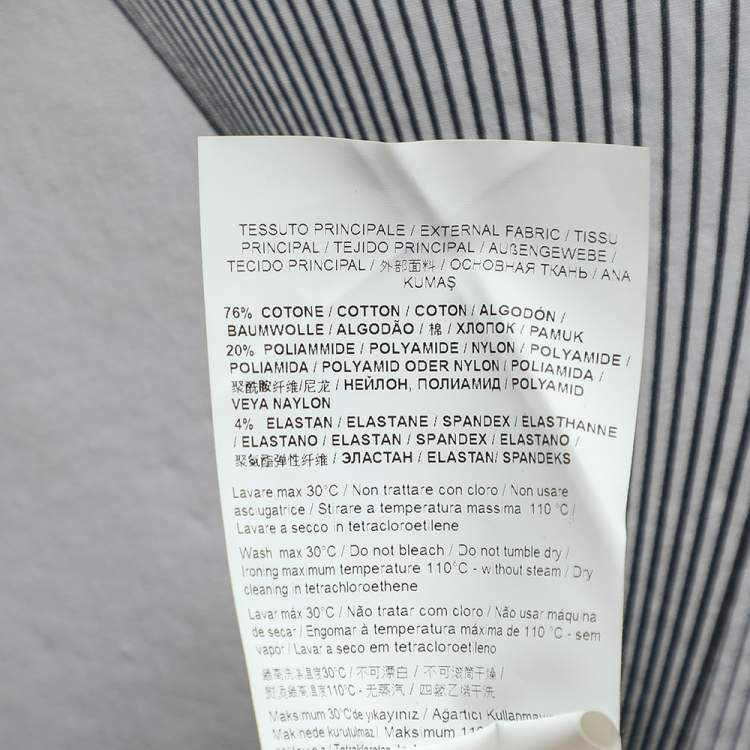 TESSUTO PRINCIPALE / EXTERNAL FABRIC / TISSU
PRINCIPAL / TEJIDO PRINCIPAL / AUßENGEWEBE /
TECIDO PRINCIPAL / 外部面料 / ОСНОВНАЯ ТКАНЬ / ANA
KUMAŞ
76% COTONE / COTTON / COTON / ALGODÓN /
BAUMWOLLE / ALGODÃO / 棉 / ХЛОПОК / PAMUK
20% POLIAMMIDE / POLYAMIDE / NYLON / POLYAMIDE /
POLIAMIDA / POLYAMID ODER NYLON / POLIAMIDA /
聚酰胺纤维/尼龙 / НЕЙЛОН, ПОЛИАМИД / POLYAMID
VEYA NAYLON
4% ELASTAN / ELASTANE / SPANDEX / ELASTHANNE
/ ELASTANO / ELASTAN / SPANDEX / ELASTANO /
聚氨酯弹性纤维 / ЭЛАСТАН / ELASTAN/ SPANDEKS
Lavare max 30°C / Non trattare con cloro / Non usare
asciugatrice / Stirare a temperatura massima 110 °C /
Lavare a secco in tetracloroetilene
Wash max 30°C / Do not bleach / Do not tumble dry /
Ironing maximum temperature 110°C - without steam / Dry
cleaning in tetrachloroethene
Lavar máx 30°C / Não tratar com cloro / Não usar máquina
de secar / Engomar à temperatura máxima de 110 °C - sem
vapor / Lavar a seco em tetracloroetileno
最高洗涤温度30°C / 不可漂白 / 不可滚筒干燥 /
熨烫最高温度110°C - 无蒸汽 / 四氯乙烯干洗
Maksimum 30°C'de yıkayınız / Ağartıcı
Makinede kurutulmaz / Maksimum